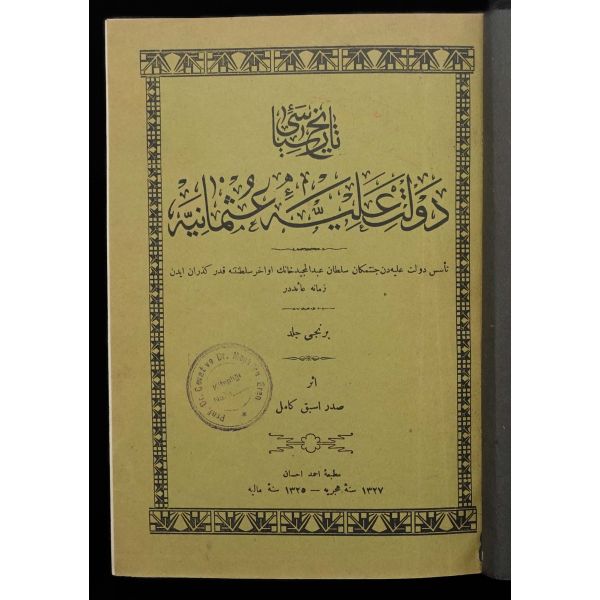 تاریخ سیاسئ
دولت علیهٔ عثمانیه
تأسس دولت علیه‌دن جنتمکان سلطان عبدالمجید خانك اواخر سلطنتنه قدر کذران ایدن
زمانه عائددر
برنجی جلد
Prof. Dr. Cevat ve Dr. Eren
Kitaplığı
اثر
صدر اسبق کامل
مطبعهٔ احمد احسان
١٣٢٧ سنهٔ هجریه — ١٣٢٥ سنهٔ مالیه